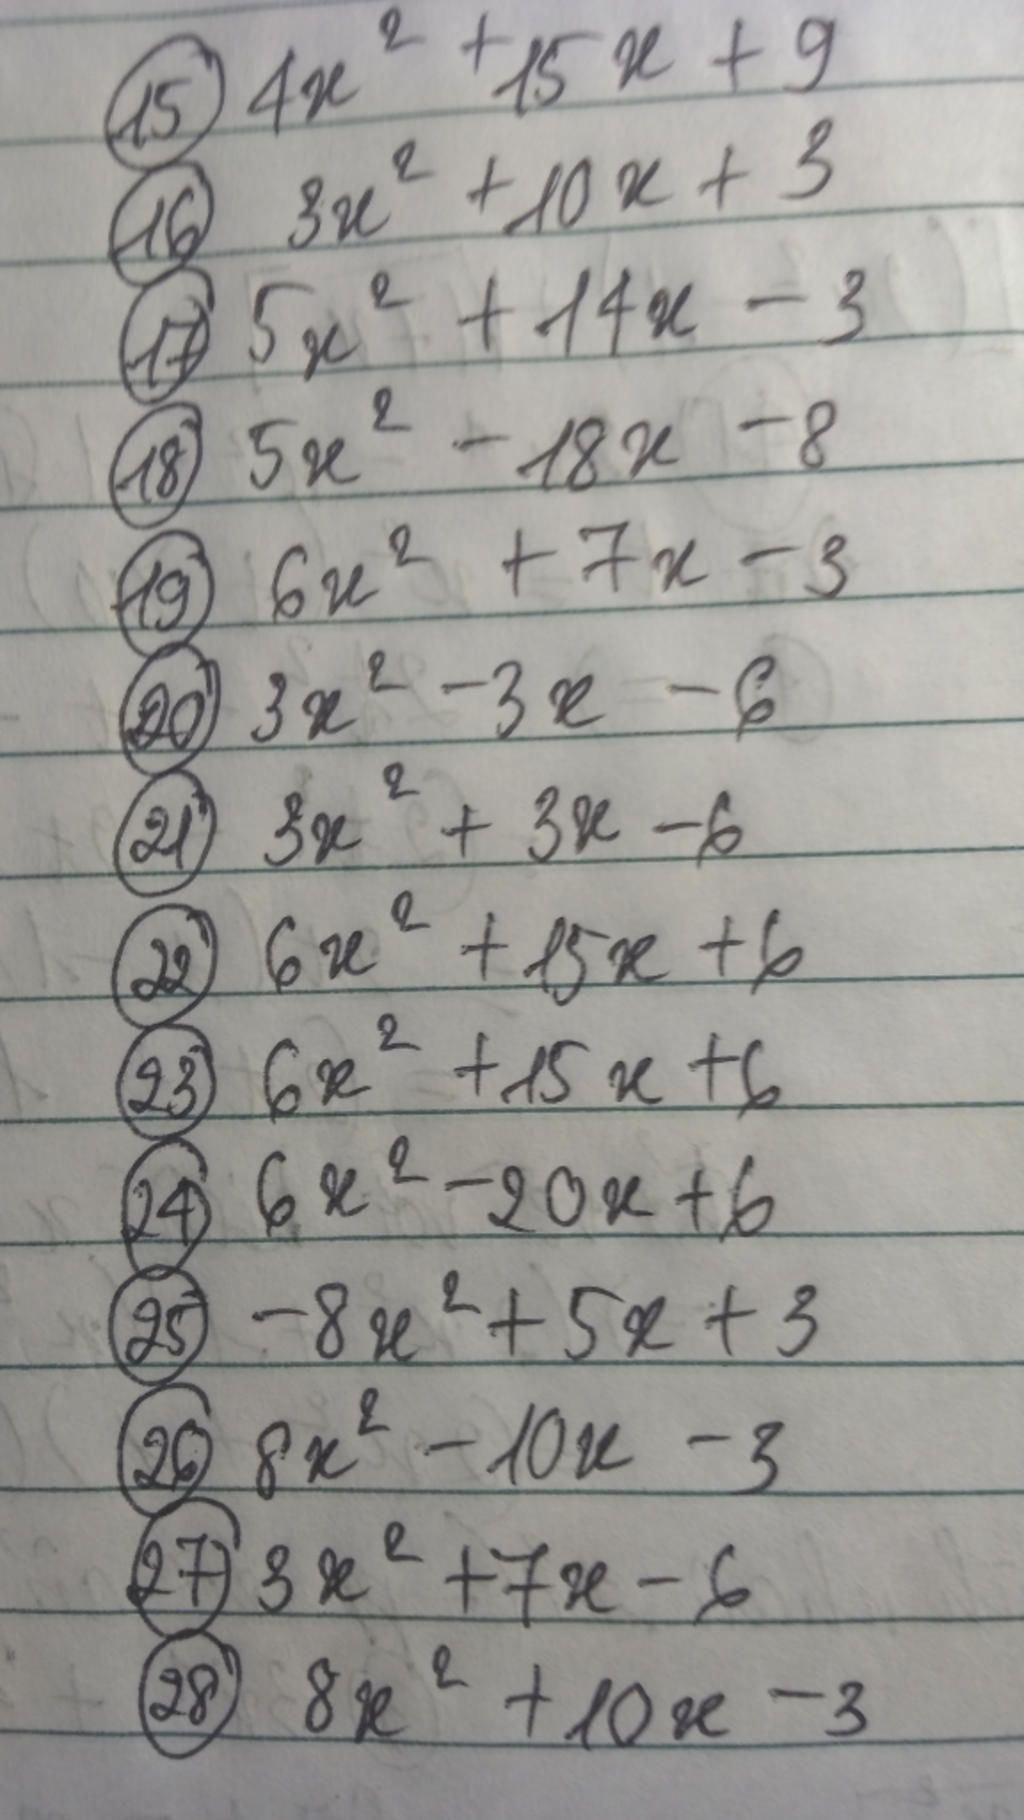 15 4x² + 15x + 9
16 3x² + 10x + 3
17 5x² + 14x - 3
18 5x² - 18x - 8
19 6x² + 7x - 3
20 3x² - 3x - 6
21 3x² + 3x - 6
22 6x² + 15x + 6
23 6x² + 15x + 6
24 6x² - 20x + 6
25 -8x² + 5x + 3
26 8x² - 10x - 3
27 3x² + 7x - 6
28 8x² + 10x - 3